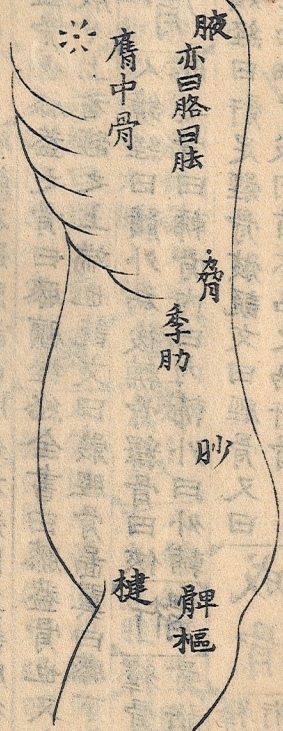 腋
亦曰胳曰胠
膺中骨
脅
季肋
䏚
髀樞
楗